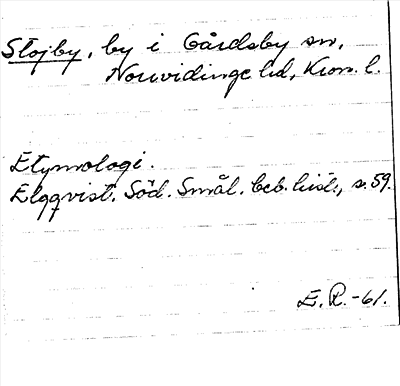 Slojby, by i Gårdsby sn,
Norrvidinge hd, Kron. l.
Etymologi.
Elgqvist. Söd. Smål. beb. hist., s. 59.
E. R. -61.